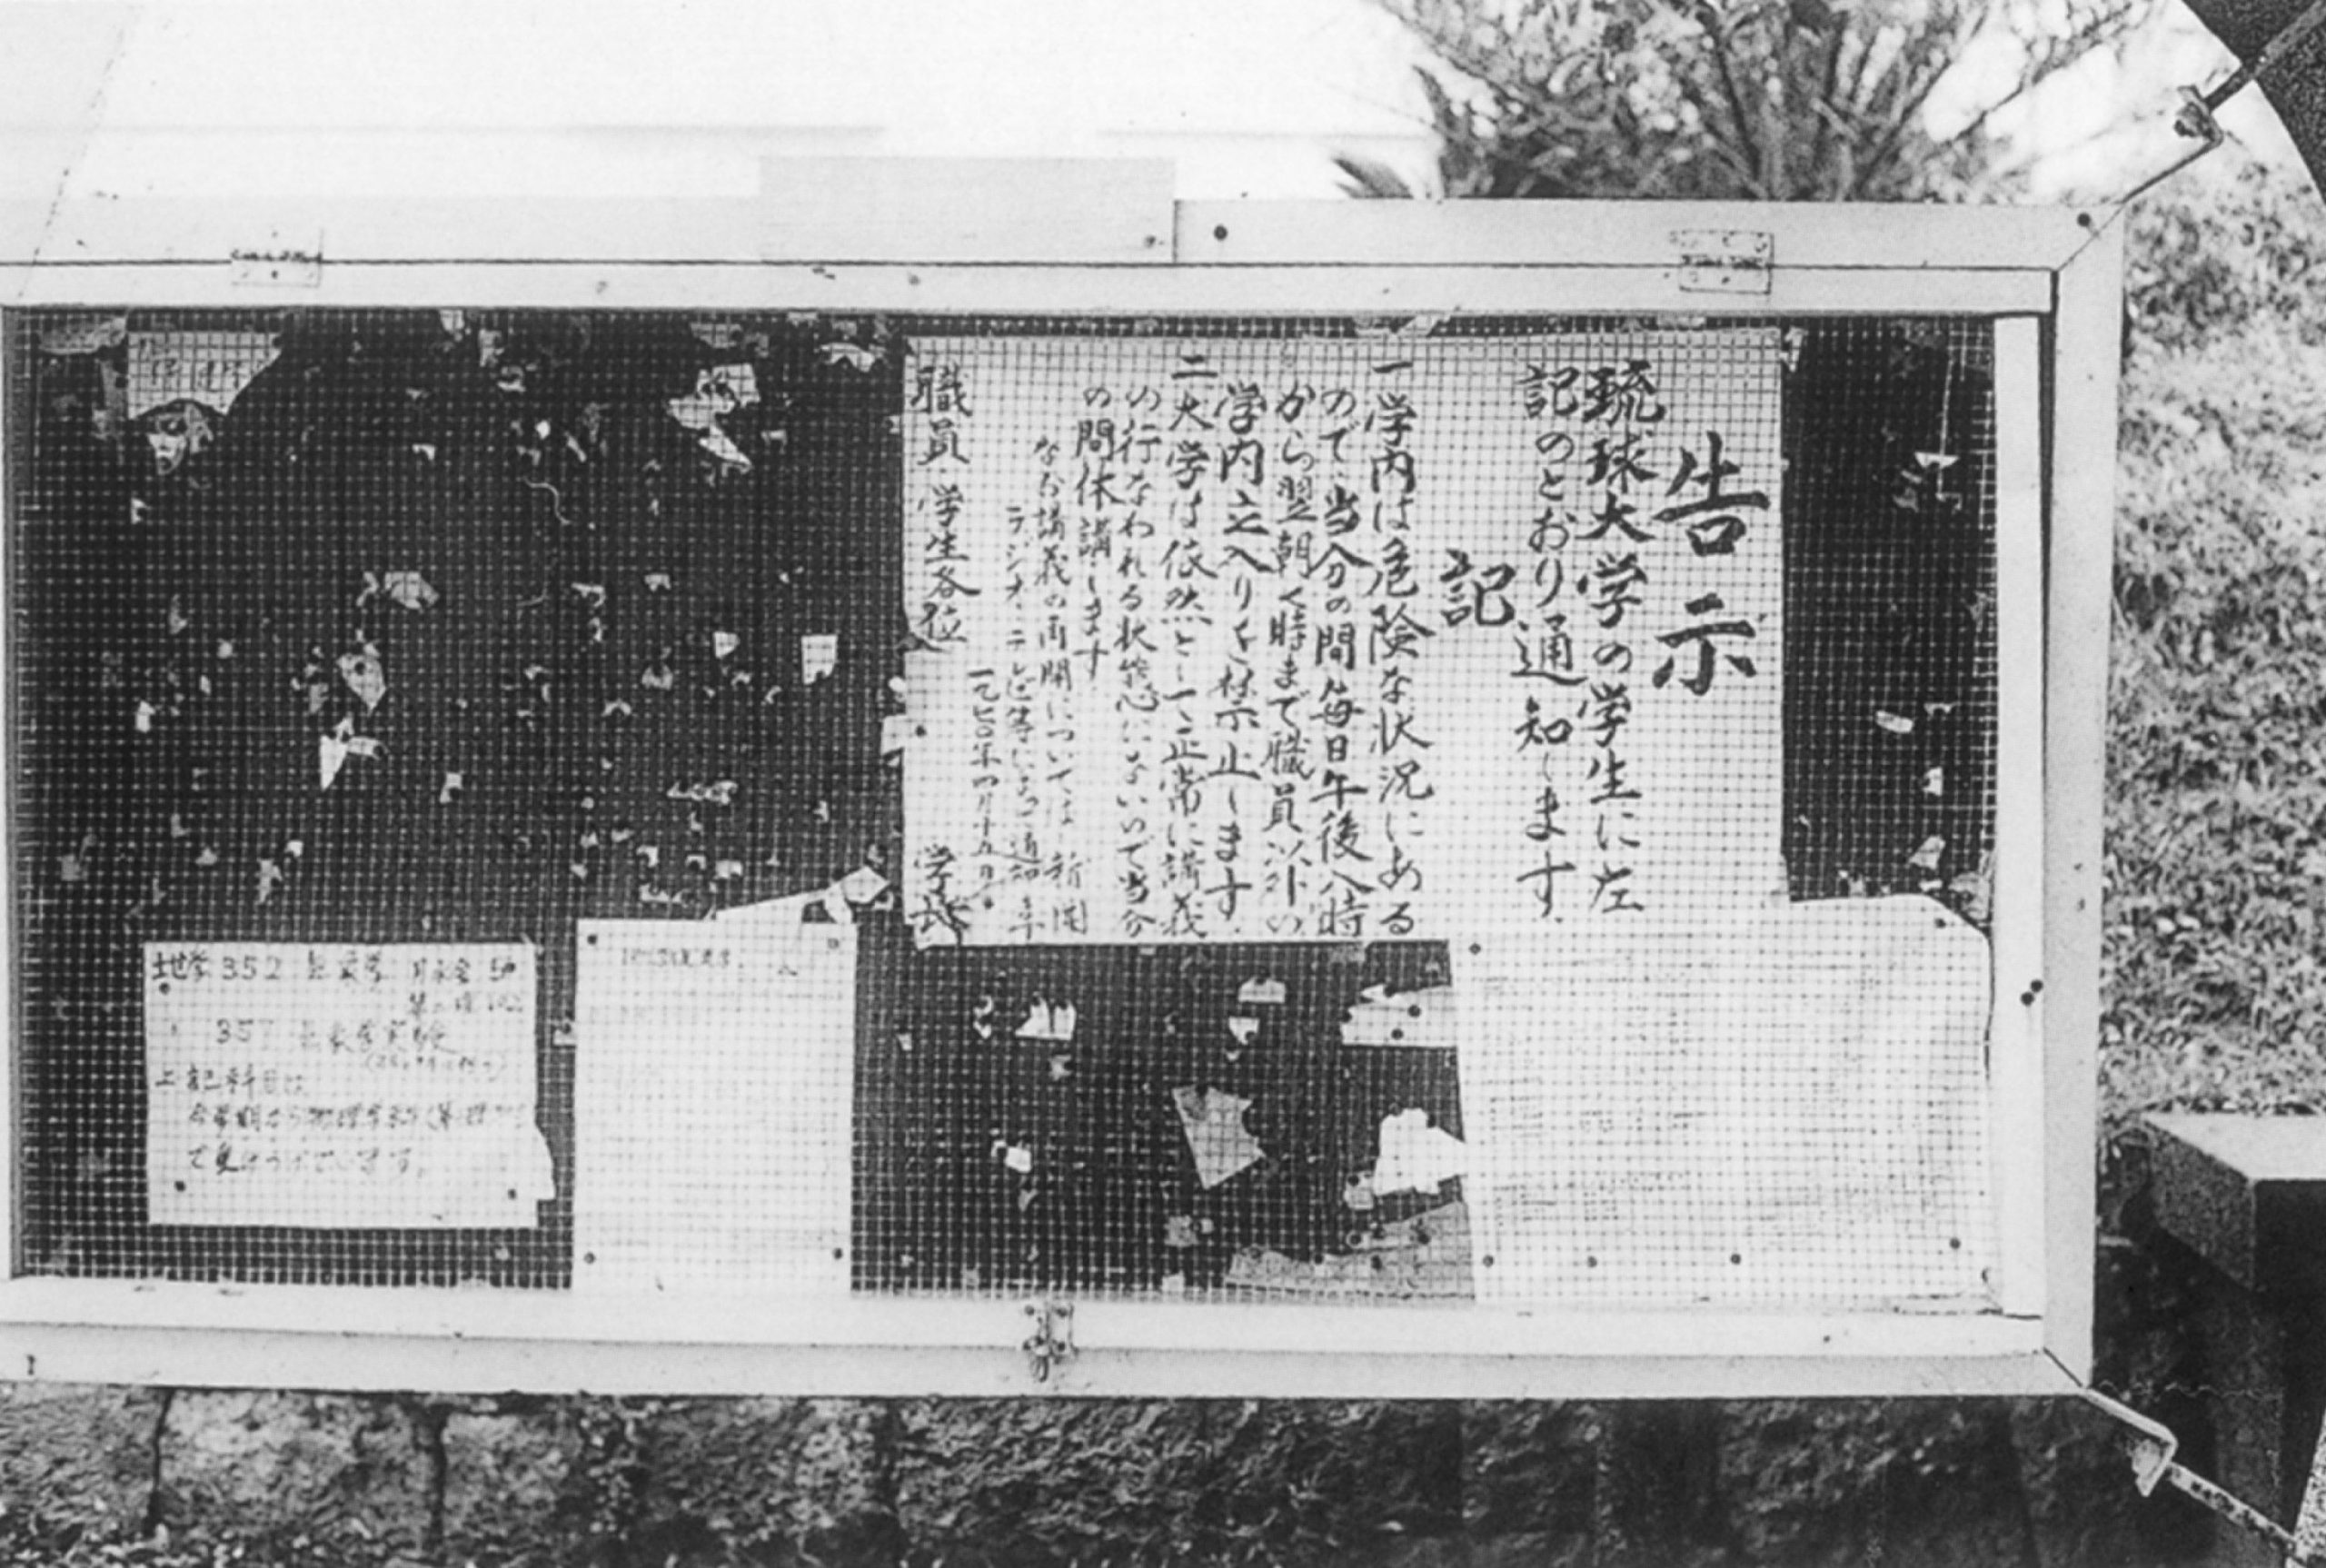 告示
琉球大学の学生に左
記のとおり通知します
記
一学内は危険な状況にある
ので当分の間毎日午後八時
から翌朝七時まで職員以外の
学内立入りを禁止します。
二大学は依然として正常に講義
の行なわれる状態にないので当分
の間休講します
なお講義の再開については新聞
ラジオ、テレビ等による通知
一九七〇年四月十五日
職員 学生各位 学長
地学 352 気象学 月水金
357 気象学実験
上記科目は